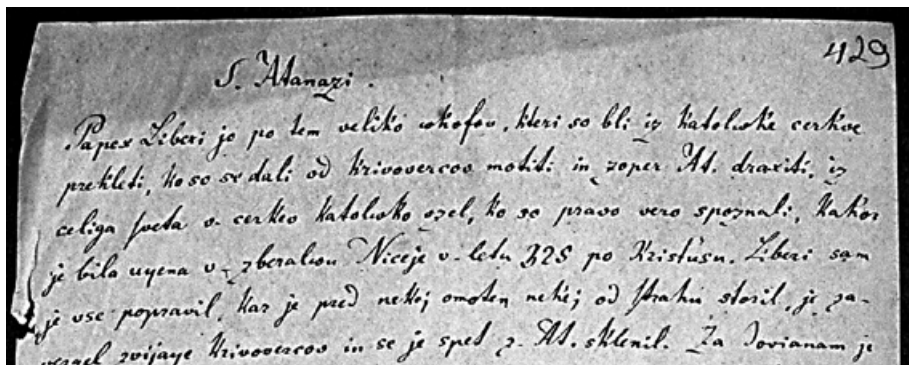 429
S. Atanazi.
Papex Liberi je po tem veliko ukofov, kteri so bli iz Katoluke cerkve
prekleti, ko so se dali od Krivovercov motiti in zoper At. draxiti, iz
celiga sveta v cerkev Katoluko vzel, ko so pravo vero spoznali, Kakor
je bila uyena v zberalwu Niceje v letu 325 po Kristusu. Liberi sam
je vse popravil, kar je pred nekoj omoten nekej od strahu storil, je za-
vergel zvijaye Krivovercov in se je spet z At. sklenil. Za Jovianam je